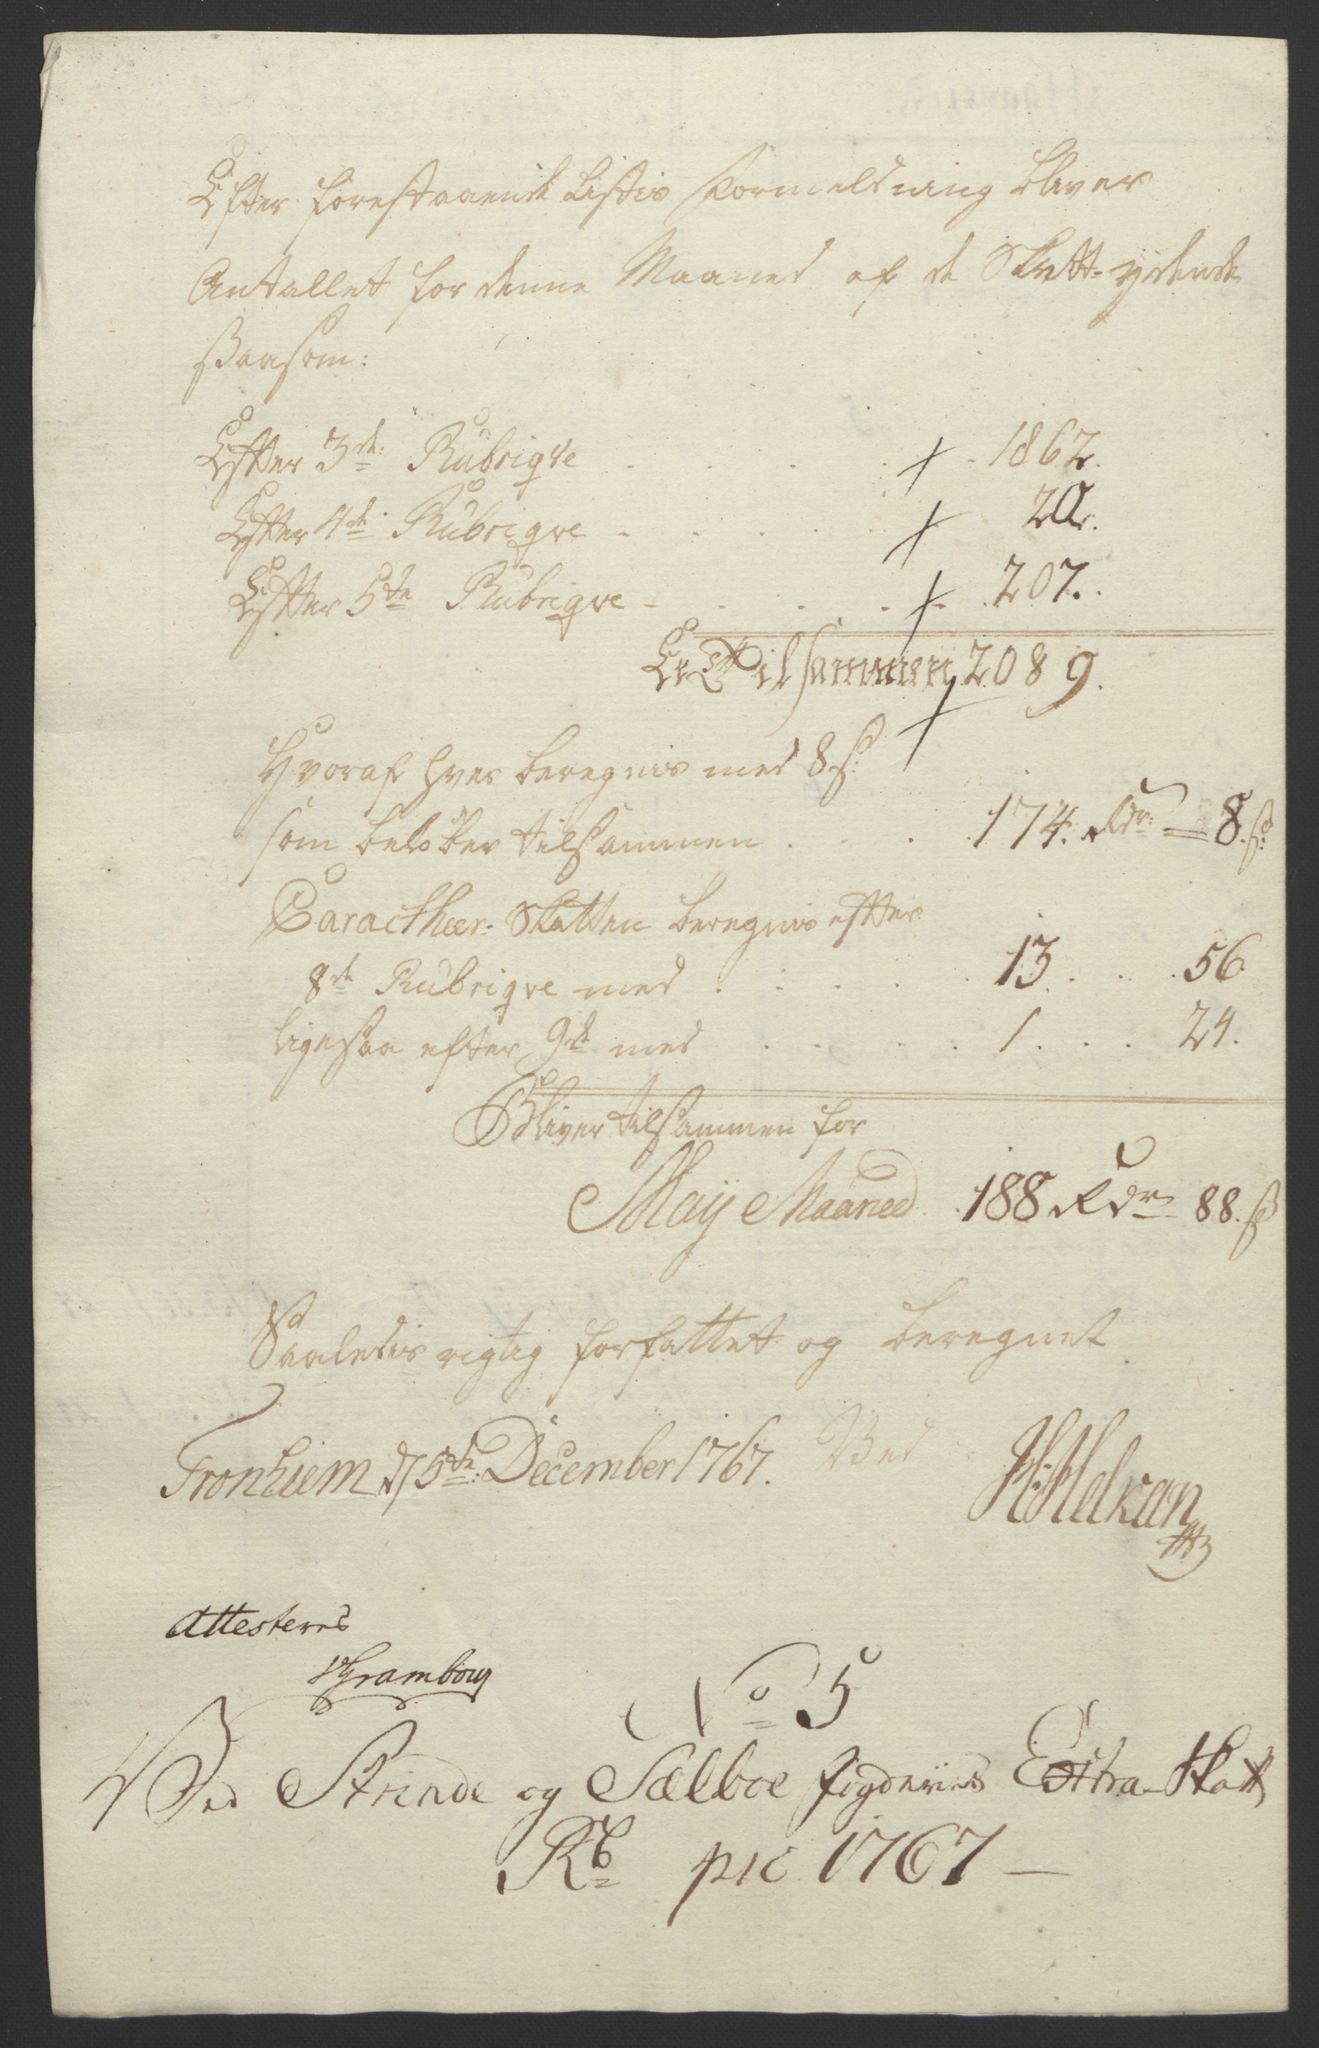 Efter forestaaende Listis Formeldning bliver
Antallet for denne Maaned af de Skatt-ydende
Saasom:
Efter 3de: Rubriqve . . . . 1862.
Efter 4de Rubriqve . . . . 20.
Efter 5te Rubriqve . . . . 207.
Er Tilsammen 2089.
Hvoraf hver beregnis med 8 s:
som beløber tilsammen . . . 174. Rdr: — 8. s:
Caractheer-Skatten beregnis efter
8de Rubriqve med . . . . 13. . . . 56.
ligesaa efter 9de med . . . . 1. . . . 24.
Bliver tilsammen for
May Maaned . 188 Rdr 88. s
Saaledis rigtig forfattet og beregnet
Tronhiem d 5te: December 1767. Ved
Attesteres
No 5
Ved Strinde og Sælboe fogderies Extra-Skatt
Rb pro 1767 —